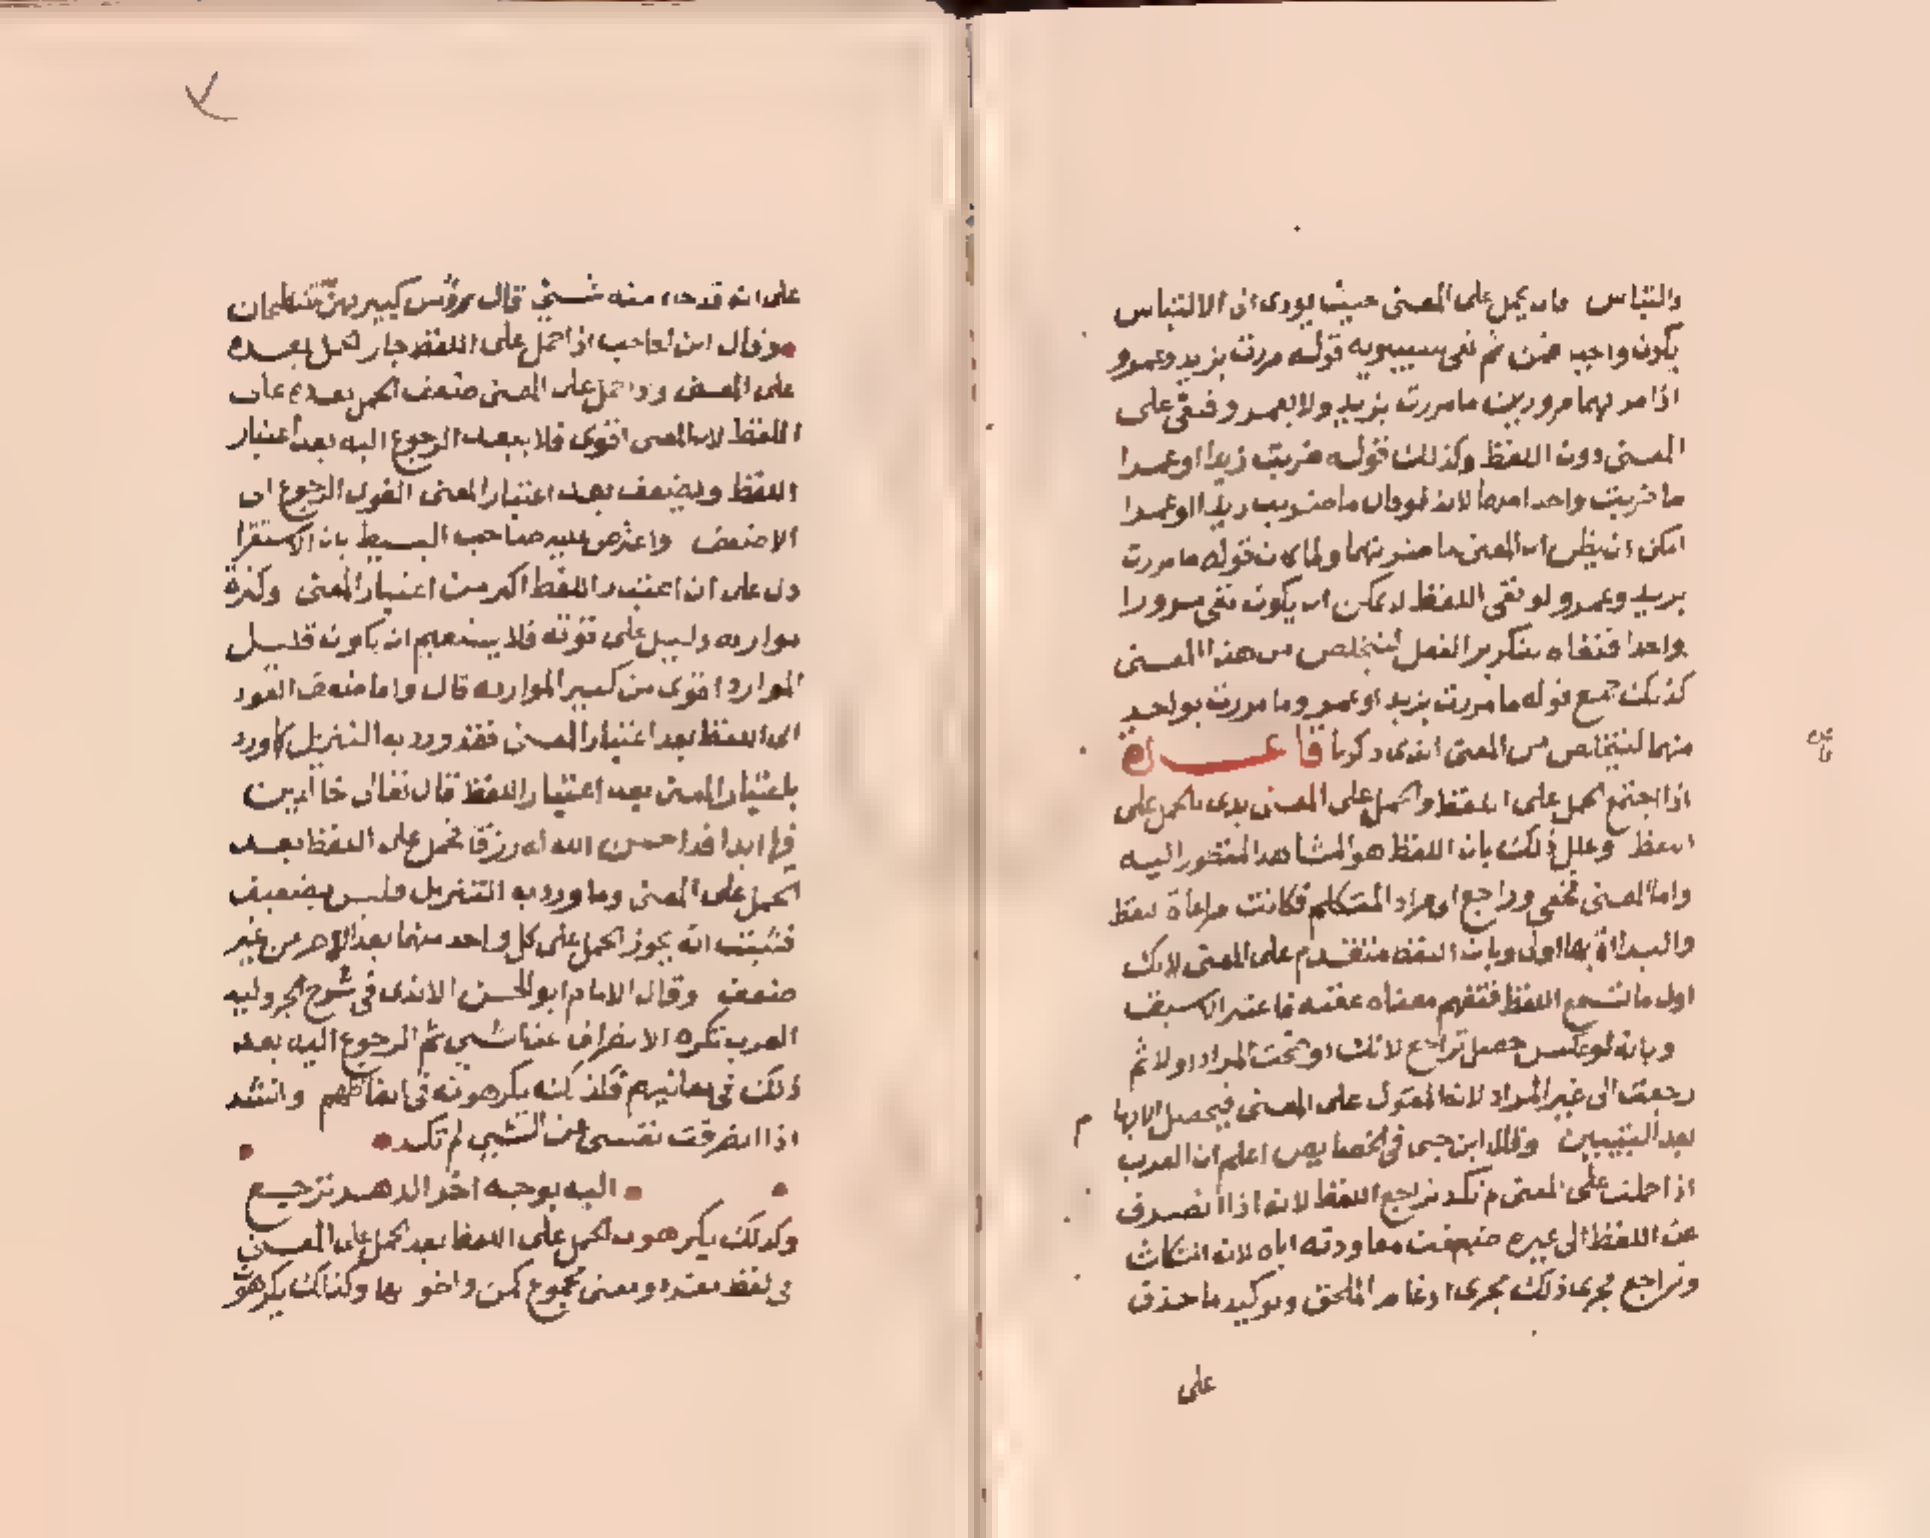 والتباس فان يحمل على المعنى حيث يودى الى الالتباس
يكون واجبا فمن ثم نفى سيبويه قوله مررت بزيد وعمرو
اذا مر بهما مرورين ما مررت بزيد ولا بعمرو فنفى على
المعنى دون اللفظ وكذلك قوله ضربت زيدا او عمرا
ما ضربت واحدا منهما لانه لو قال ما ضربت زيدا او عمرا
امكن ان يظن ان المعنى ما ضربتهما ولما كان قوله ما مررت
بزيد وعمرو لو نفى اللفظ لا يمكن ان يكون نفى مرورا
واحدا فنفاه بتكرير الفعل ليتخلص من هذا المعنى
كذلك جمع قوله ما مررت بزيد او عمرو وما مررت بواحد
منهما ليتخلص من المعنى الذى ذكرنا قاعدة
اذا اجتمع الحمل على اللفظ والحمل على المعنى بدى بالحمل على
اللفظ وعلل ذلك بان اللفظ هو المشاهد المنظور اليه
واما المعنى فخفى وراجع الى مراد المتكلم فكانت مراعاة اللفظ
والبداة بها اولى وبان اللفظ متقدم على المعنى لانك
اول ما تسمع اللفظ فتفهم معناه عقبه فاعتبر الاسبق
وبانه لو عكس حصل تراجع لانك اوضحت المراد اولا ثم
رجعت الى غير المراد لانه المعول على المعنى فيحصل الابها
م
بعد التبيين وقال ابن جنى فى الخصايص اعلم ان العرب
اذا حملت على المعنى لم تكد تراجع اللفظ لانه اذا انصرف
عن اللفظ الى غيره ضعفت معاودته اياه لانه انتكاث
وتراجع فجرى ذلك مجرى ادغام الملحق وتوكيد ما حذف
على
على انه قد جاء منه شىء قال رؤس كبيريهن ينتطحان
وقال ابن الحاجب اذا حمل على اللفظ جاز الحمل بعده
على المعنى واذا حمل على المعنى ضعف الحمل بعده على
اللفظ لان المعنى اقوى فلا يبعد الرجوع اليه بعد اعتبار
اللفظ ويضعف بعد اعتبار المعنى القوى الرجوع الى
الاضعف واعترض عليه صاحب البسيط بان الاستقرا
دل على ان اعتبار اللفظ اكثر من اعتبار المعنى وكثرة
موارده دليل على قوته فلا يستقيم ان يكون قليل
الموارد اقوى من كثير الموارد قال واما ضعف العود
الى اللفظ بعد اعتبار المعنى فقد ورد به التنزيل كما ورد
باعتبار المعنى بعد اعتبار اللفظ قال تعالى خالدين
فيها ابدا قد احسن الله له رزقا فحمل على اللفظ بعد
الحمل على المعنى وما ورد به التنزيل فليس بضعيف
فثبت انه يجوز الحمل على كل واحد منهما بعد الاخر من غير
ضعف وقال الامام ابو الحسن الابذى فى شرح الجزوليه
العرب تكره الانصراف عن الشىء ثم الرجوع اليه بعد
ذلك فى معانيهم فلذلك يكرهونه فى الفاظهم وانشد
اذا انصرفت نفسى عن الشىء لم تكد
اليه بوجه اخر الدهر ترجع
وكذلك يكرهون الحمل على اللفظ بعد الحمل على المعنى
فى لفظ مفرد ومعنى مجموع كمن واخو بها وكذلك يكرهون